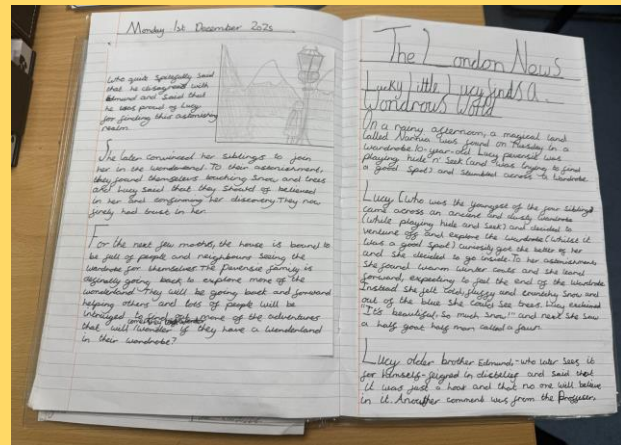 Monday 1st December 2025
who quite spitefully said
that he disagreed with
Edmund and said that
he was proud of Lucy
for finding this astonishing
realm.
She later convinced her siblings to join
her in the wonderland. To their astonishment,
they found themselves touching snow and trees
and Lucy said that they should of believed
in her and confirming her discovery. They now
surely had trust in her.
For the next few months, the house is bound to
be full of people and neighbours seeing the
wardrobe for themselves. The Pevensie family is
definitely going back to explore more of the
wonderland. They will be going back and forward
helping others and lots of people will be
intrigued to find out more of the adventures
that will wonder if they have a wonderland
in their wardrobe?
The London News
Lucky Little Lucy finds a
Wondrous World
On a rainy afternoon, a magical land
called Narnia was found on Tuesday in a
wardrobe. 10-year-old Lucy Pevensie was
playing hide n' Seek (and was trying to find
a good spot) and stumbled across a wardrobe.
Lucy (who was the youngest of the four siblings)
came across an ancient and dusty wardrobe
(while playing hide and seek) and decided to
venture off and explore the wardrobe (whilst it
was a good spot) curiosity got the better of her
and she decided to go inside. To her astonishment,
she found warm winter coats and she leant
forward, expecting to feel the end of the wardrobe
Instead she felt cold, fluffy and crunchy snow and
out of the blue she could see trees. Lucy exclaimed
"It's beautiful, so much snow!" and next she saw
a half goat half man called a faun.
Lucy older brother Edmund - who later sees it
for himself - feigned in disbelief and said that
it was just a hoax and that no one will believe
in it. Another comment was from the Professor,